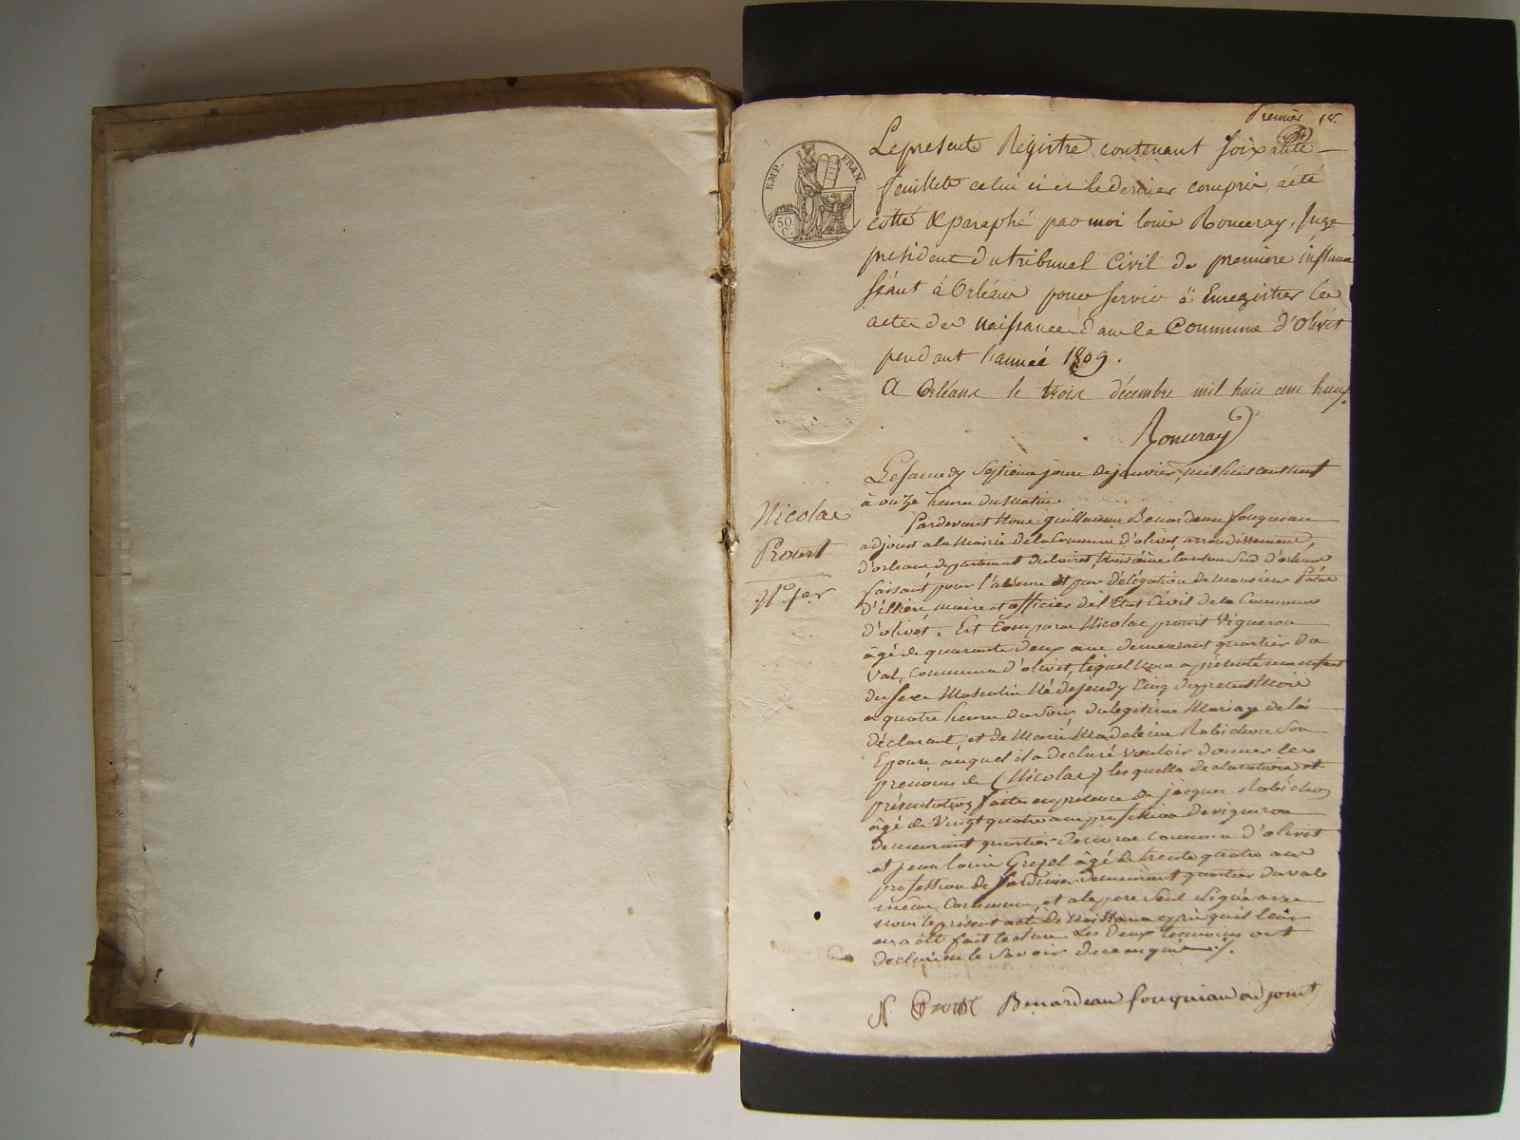 Premier
EMP. FRAN.
50
Le present Régistre contenant soixante
feuillets celui ci et le dernier compris, a été
cotté & paraphé par moi Louis Ronceray, Juge
président du tribunal Civil de premiere instance
séant à Orléans pour servir à Enregistrer les
actes de Naissance dans la Commune d'Olivet
pendant l'année 1809.
A Orléans le trois décembre mil huit cent huit
Ronceray
Le Samedy Septieme jour de janvier, mil huit cent neuf
à onze heures du Matin
Nicolas
Proust
N.o 1.er
Pardevant Nous guillaume Benardeau fouqueau
adjoint a la Mairie de la Commune d'olivet arrondissement
d'orleans departement du loiret, canton Sud d'orleans
faisant pour l'absence et par délégation de Monsieur
d'illiers, maire et officier de l'Etat Civil de la Commune
d'olivet. Est Comparu Nicolas proust Vigneron
âgé de quarante deux ans demeurant quartier du
Val, Commune d'olivet, lequel nous a présenté un enfant
du sexe Masculin Né de jeudy Cinq du présent Mois
a quatre heures du Soir du legitime Mariage de lui
déclarant, et de Marie Madeleine Rabideau Son
Epouse auquel il a declaré vouloir donner les
prenoms de (Nicolas) lesquelles declaration et
présentation faites en présence de jacques
âgé de Vingt quatre ans profession de vigneron
demeurant quartier Commune d'olivet
et jean louis âgé de trente quatre ans
profession de Jardinier demeurant quartier du val
même Commune, et a le pere Seul Signé avec
nous le présent acte de Naissance après qu'il leur
en a été fait lecture Les Deux temoins ont
declaré ne le Savoir de ce enquis ./.
N Proust Benardeau fouqueau adjoint